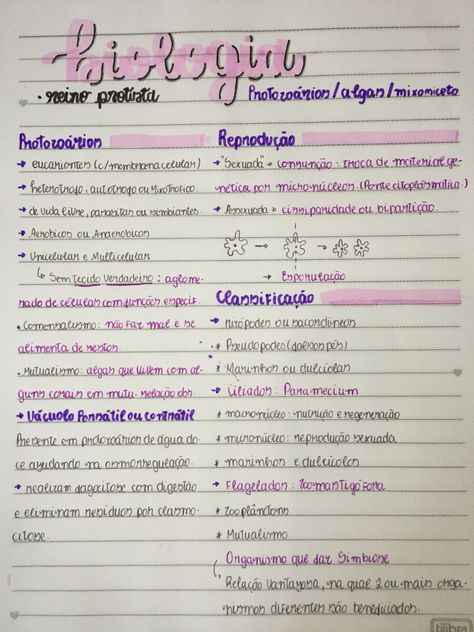 biologia
• reino protista
Protozoários/algas/mixomiceto
Protozoários
→ eucariontes (c/membrana celular)
→ heterótrofo, autótrofo ou Mixotrofico
→ de vida livre, parasitas ou simbiantes.
→ Aeróbicos ou Anaerobicos
→ Unicelular e Multicelular
↳ Sem Tecido Verdadeiro: aglome-
rado de células com funções especif.
• Comensalismo: não faz mal e se
alimenta de restos.
• Mutualismo: algas que vivem com al-
guns corais em mutu. relação obr.
→ Vácuolo Pulsátil ou contrátil
Presente em protozoários de água do-
ce ajudando na osmorregulação.
→ realizam fagocitose com digestão
e eliminam resíduos por clasmo-
citose.
Reprodução
→ "Sexuada" → conjunção: troca de material ge-
nética por micronúcleos (Ponte citoplasmática)
→ Assexuada → cissiparidade ou bipartição
→ Esporulação
Classificação
→ Rizópodes ou sacondíneos
* Pseudopodes (falsos pés)
* Marinhos ou dulciolas
→ Ciliados: Paramecium
* macronúcleo: nutrição e regeneração
* micronúcleo: reprodução sexuada
* marinhos e dulcícolas
→ Flagelados: zoomastigófona
* zooplâncton
* Mutualismo
Organismo que dar Simbiose
↳ Relação vantajosa, na qual 2 ou mais orga-
nismos diferentes são beneficiados.
tilibra